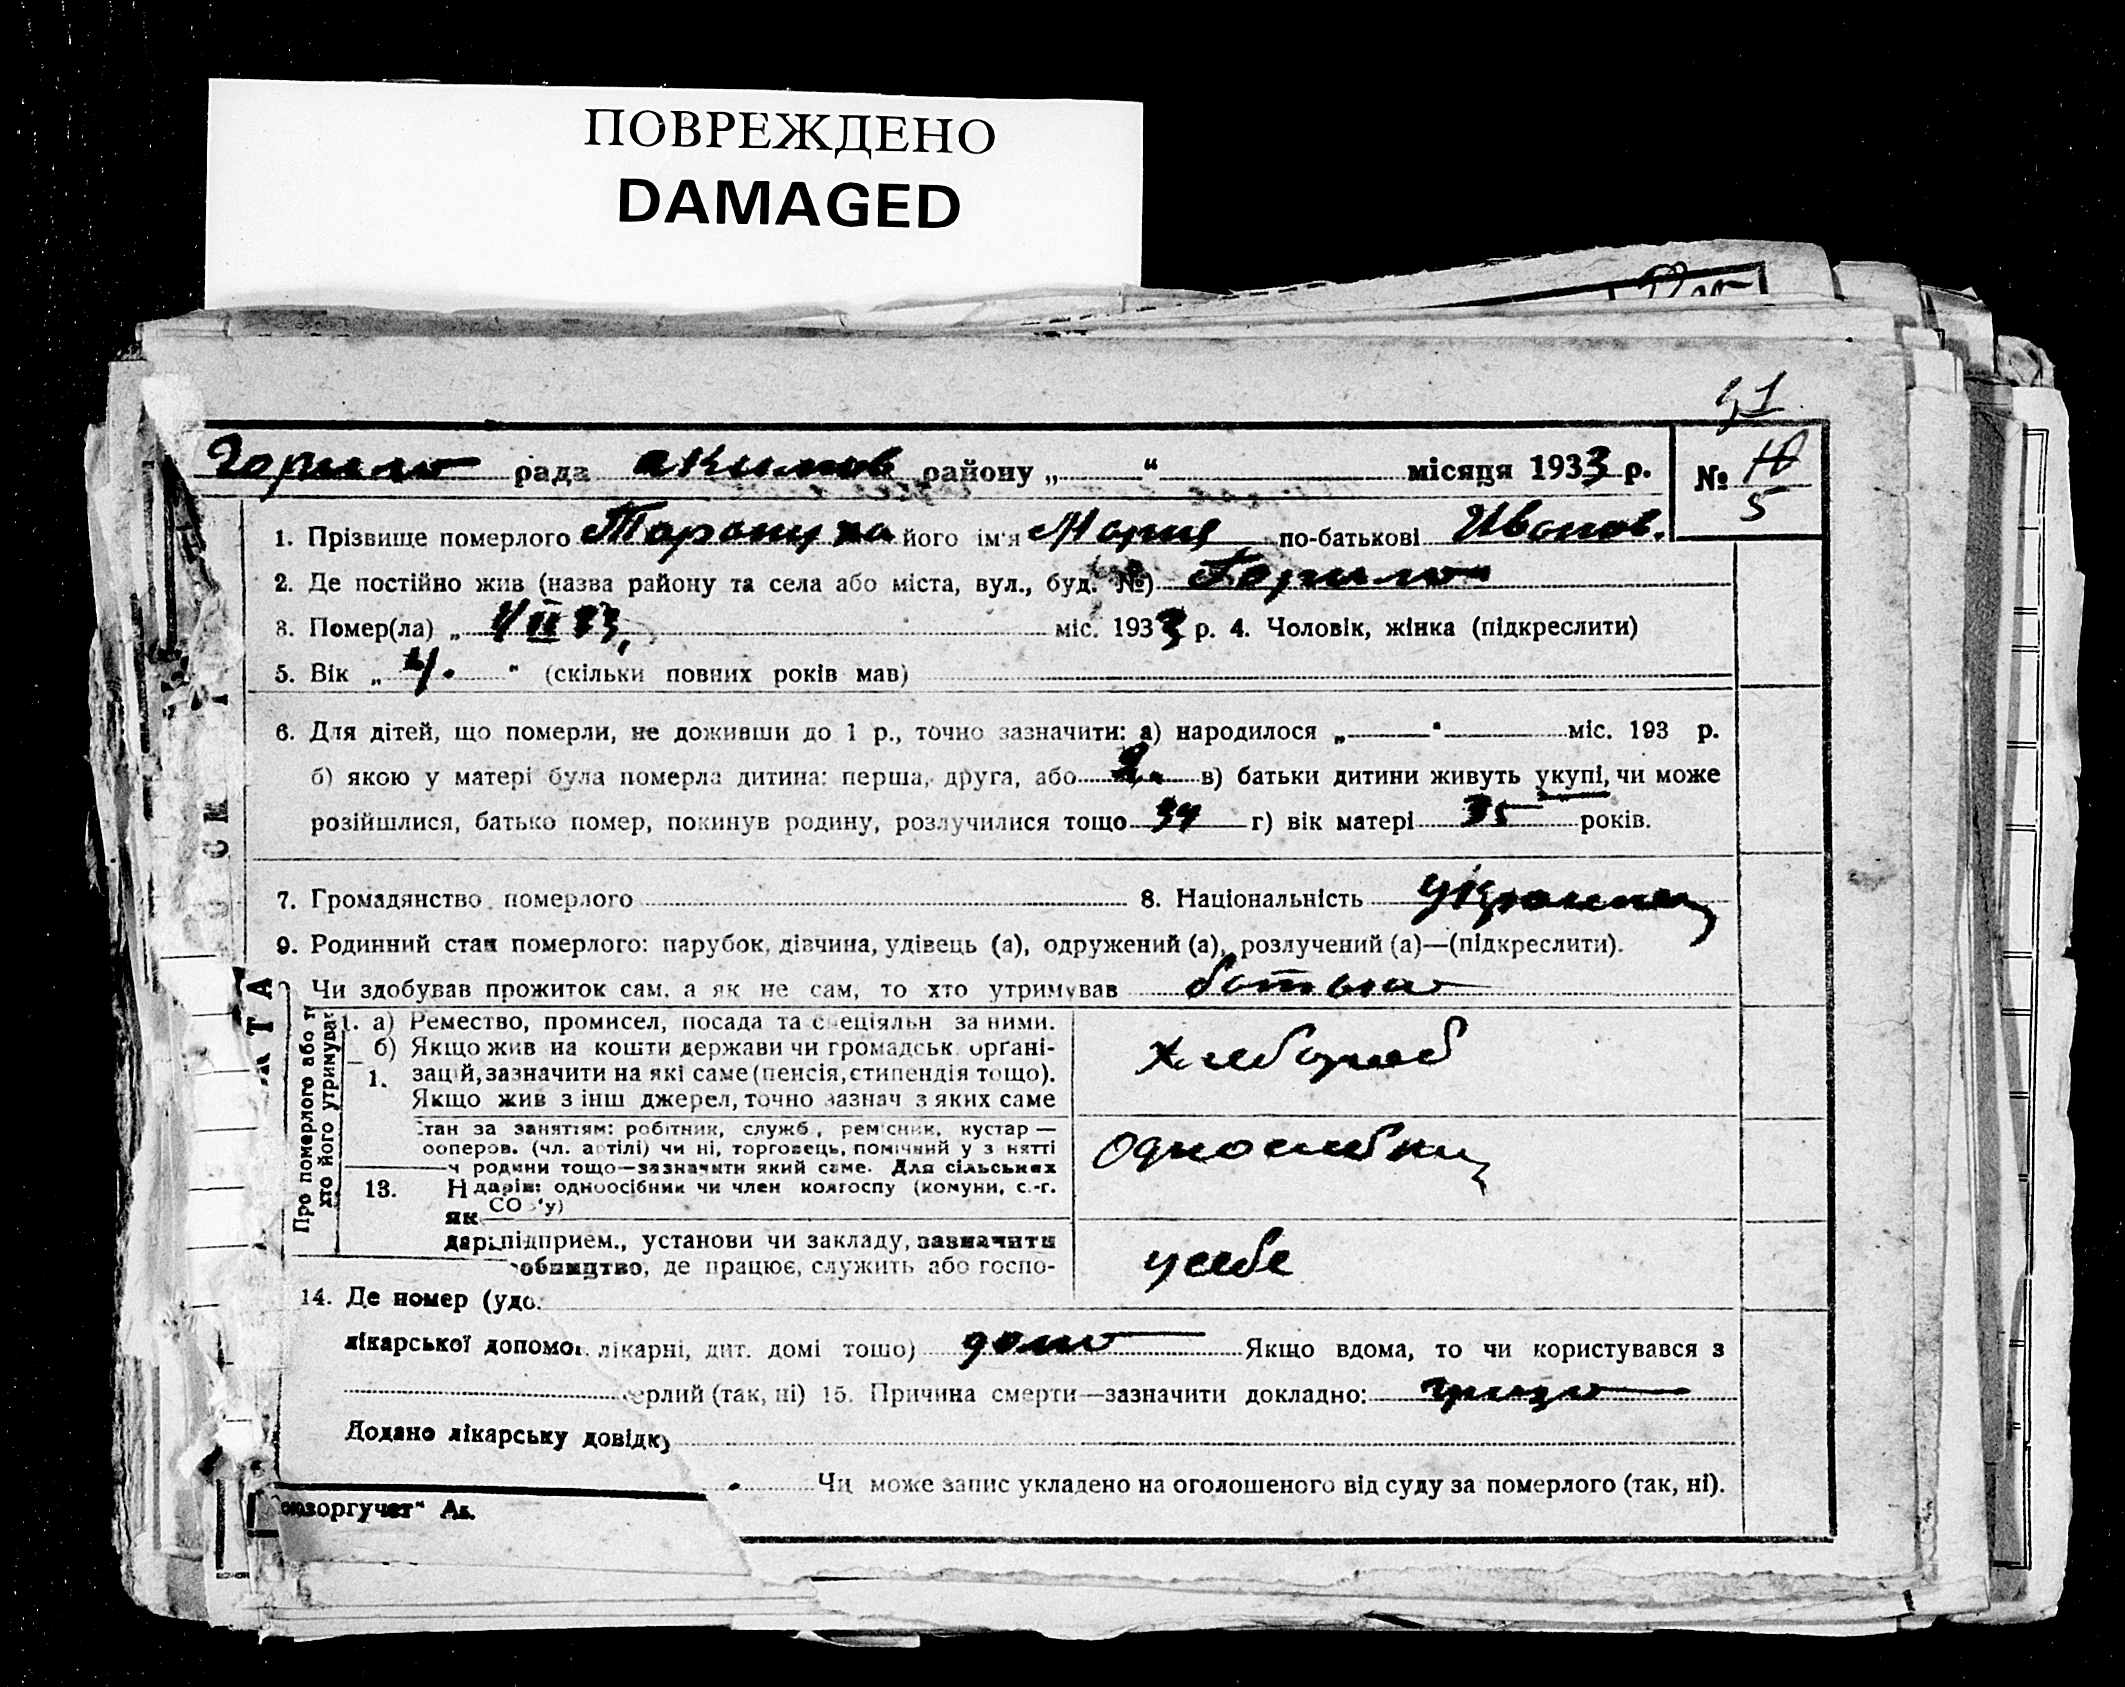 ПОВРЕЖДЕНО
DAMAGED
рада акимов району „ “ місяця 1933 р. № 10
5
1. Прізвище померлого його ім'я Мария по-батькові Иванов.
2. Де постійно жив (назва району та села або міста, вул., буд. №)
3. Помер(ла) „ міс. 1933 р. 4. Чоловік, жінка (підкреслити)
5. Вік „ 4. “ (скільки повних років мав)
6. Для дітей, що померли, не доживши до 1 р., точно зазначити: а) народилося „ “ міс. 193 р.
б) якою у матері була померла дитина: перша, друга, або в) батьки дитини живуть укупі, чи може
розійшлися, батько помер, покинув родину, розлучилися тощо 34 г) вік матері 35 років.
7. Громадянство померлого 8. Національність украинец
9. Родинний стан померлого: парубок, дівчина, удівець (а), одружений (а), розлучений (а)—(підкреслити).
Чи здобував прожиток сам, а як не сам, то хто утримував батько
Про померлого або т
хто його утримува
1. а) Ремество, промисел, посада та с еціяльн за ними.
б) Якщо жив на кошти держави чи громадськ органі-
1. зацій, зазначити на які саме (пенсія, стипендія тощо).
Якщо жив з інш джерел, точно зазнач з яких саме
хлебороб
тан за заняттям: робітник, служб, ремісник, кустар —
ооперов. (чл. артілі) чи ні, торговець, помічний у з нятті
ч родини тощо—зазначити який саме. Для сільських
13. Н дарів: одноосібник чи член колгоспу (комуни, с.-г.
СО у)
як
дарпідприєм., установи чи закладу, зазначити
обництво, де працює, служить або госпо-
у себе
14. Де помер (удо
лікарської допомог лікарні, дит. домі тощо) дома Якщо вдома, то чи користувався з
ерлий (так, ні) 15. Причина смерти—зазначити докладно:
Додано лікарську довідку
Чи може запис укладено на оголошеного від суду за померлого (так, ні).
оюзоргучет“ Ак.